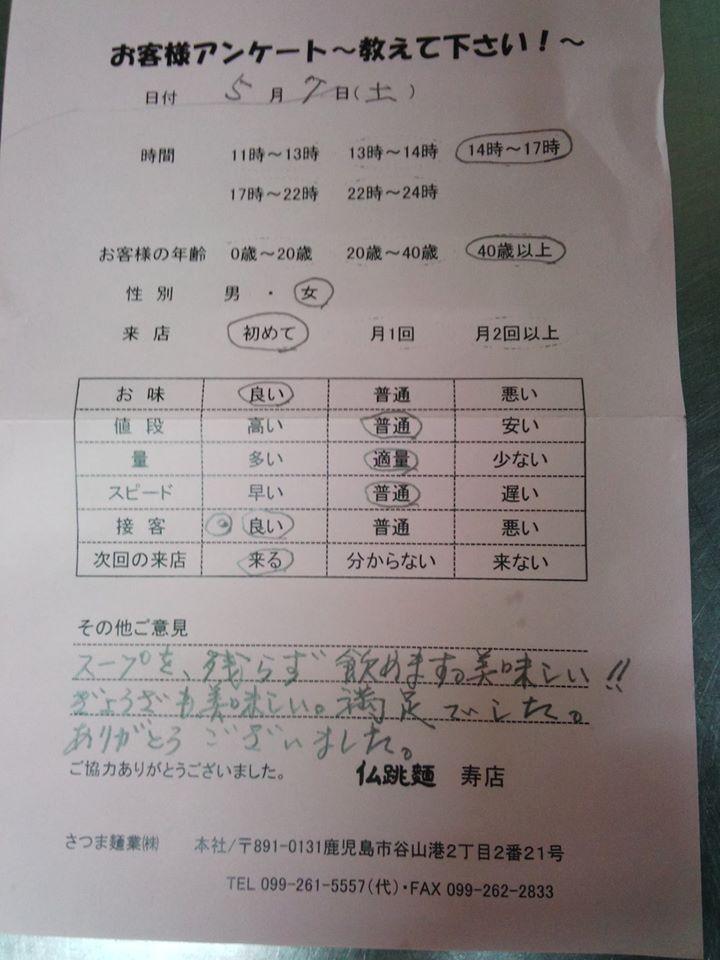 お客様アンケート～教えて下さい！～
日付 5月7日(土)
時間 11時～13時 13時～14時 14時～17時
17時～22時 22時～24時
お客様の年齢 0歳～20歳 20歳～40歳 40歳以上
性別 男・女
来店 初めて 月1回 月2回以上
お味 良い 普通 悪い
値段 高い 普通 安い
量 多い 適量 少ない
スピード 早い 普通 遅い
接客 良い 普通 悪い
次回の来店 来る 分からない 来ない
その他ご意見
スープを、残らず飲めます。美味しい!!
ぎょうざも美味しい。満足でした。
ありがとうございました。
ご協力ありがとうございました。 仏跳麺 寿店
さつま麺業㈱ 本社/〒891-0131鹿児島市谷山港2丁目2番21号
TEL 099-261-5557(代)・FAX 099-262-2833